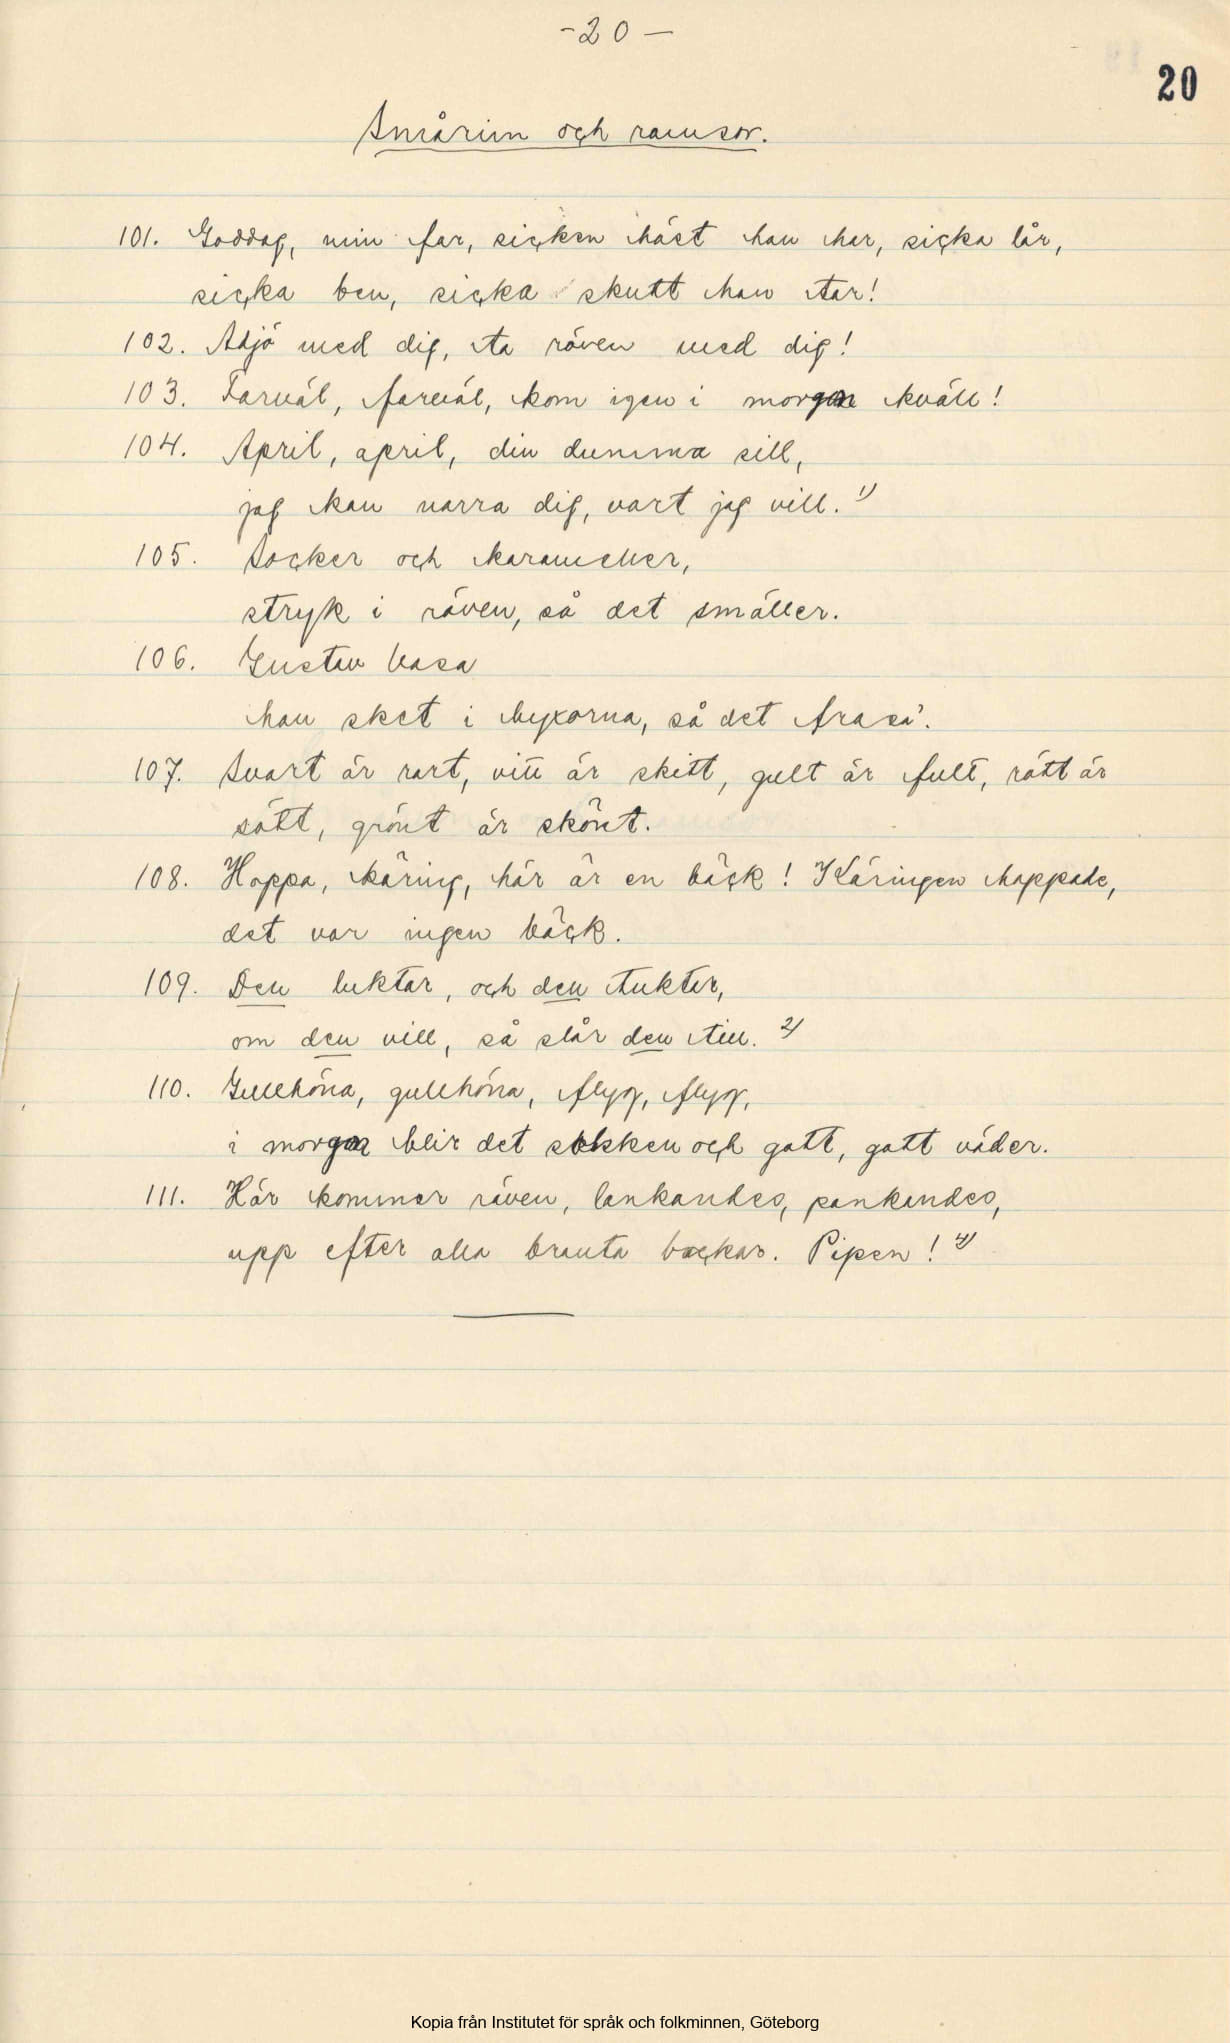 -20-
20
Smårim och ramsor.
101. Goddag, min far, sicken häst han har, sicka lår,
sicka ben, sicka skutt han tar!
102. Adjö med dig, ta räven med dig!
103. Farväl, farväl, kom igen i morgen kväll!
104. April, april, din dumma sill,
jag kan narra dig, vart jag vill. 1)
105. Socker och karameller,
stryk i räven, så det smäller.
106. Gustav Vasa
han sket i byxorna, så det frasa'.
107. Svart är rart, vitt är skitt, gult är fult, rött är
sött, grönt är skönt.
108. Hoppa, käring, här är en bäck! Käringen hoppade,
det var ingen bäck.
109. Den luktar, och den tukter,
om den vill, så slår den till. 2)
110. Gullhöna, gullhöna, flyg, flyg,
i morgon blir det sokken och gott, gott väder.
111. Här kommer räven, lankandes, pankandes,
upp efter alla branta backar. Pipen!
Kopia från Institutet för språk och folkminnen, Göteborg